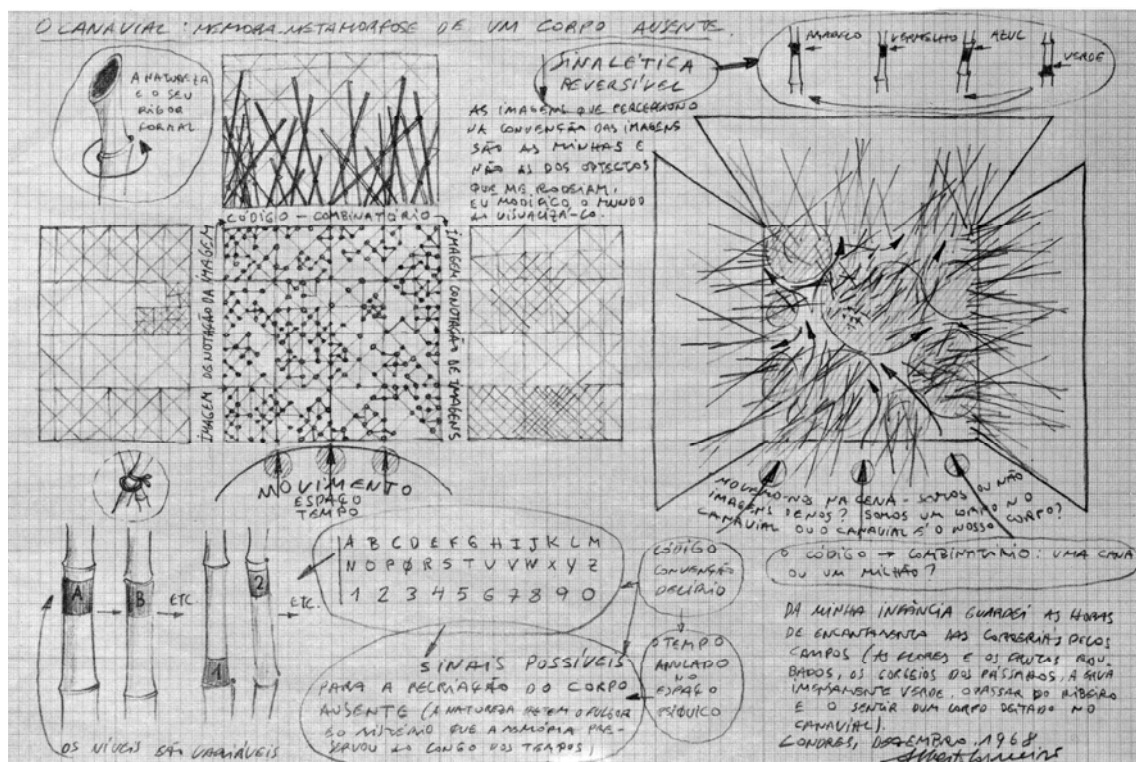 O CANAVIAL: MEMÓRIA-METAMORFOSE DE UM CORPO AUSENTE.
A NATUREZA
E O SEU
RIGOR
FORMAL
SINALÉTICA
REVERSÍVEL
AMARELO
VERMELHO
AZUL
VERDE
AS IMAGENS QUE PERCEPCIONO
NA CONVENÇÃO DAS IMAGENS
SÃO AS MINHAS E
NÃO AS DOS OBJECTOS
QUE ME RODEIAM.
EU MODIFICO O MUNDO
AO VISUALIZÁ-LO.
CÓDIGO - COMBINATÓRIO
IMAGEM DENOTAÇÃO DA IMAGEM
IMAGEM CONOTAÇÃO DE IMAGENS
MOVIMENTO
ESPAÇO
TEMPO
MOVEMO-NOS NA CENA - SOMOS OU NÃO
IMAGENS DE NÓS? SOMOS UM CORPO NO
CANAVIAL OU O CANAVIAL É O NOSSO CORPO?
O CÓDIGO → COMBINATÓRIO: UMA CANA
OU UM MILHÃO?
A
B
ETC.
1
2
ETC.
OS NÍVEIS SÃO VARIÁVEIS
A B C D E F G H I J K L M
N O P Ø R S T U V W X Y Z
1 2 3 4 5 6 7 8 9 0
CÓDIGO
CONVENÇÃO
DELÍRIO
O TEMPO
ANULADO
NO
ESPAÇO
PSÍQUICO
SINAIS POSSÍVEIS
PARA A RECRIAÇÃO DO CORPO
AUSENTE (A NATUREZA RETEM O FULGOR
E O MISTÉRIO QUE A MEMÓRIA PRE-
SERVOU AO LONGO DOS TEMPOS)
DA MINHA INFÂNCIA GUARDEI AS HORAS
DE ENCANTAMENTO DAS CORRERIAS PELOS
CAMPOS (AS FLORES E OS FRUTOS ROU-
BADOS, OS GORGEIOS DOS PÁSSAROS, A ERVA
IMENSAMENTE VERDE, O PASSAR DO RIBEIRO
E O SENTIR DUM CORPO DEITADO NO
CANAVIAL).
LONDRES, DEZEMBRO. 1968
Alberto Carneiro